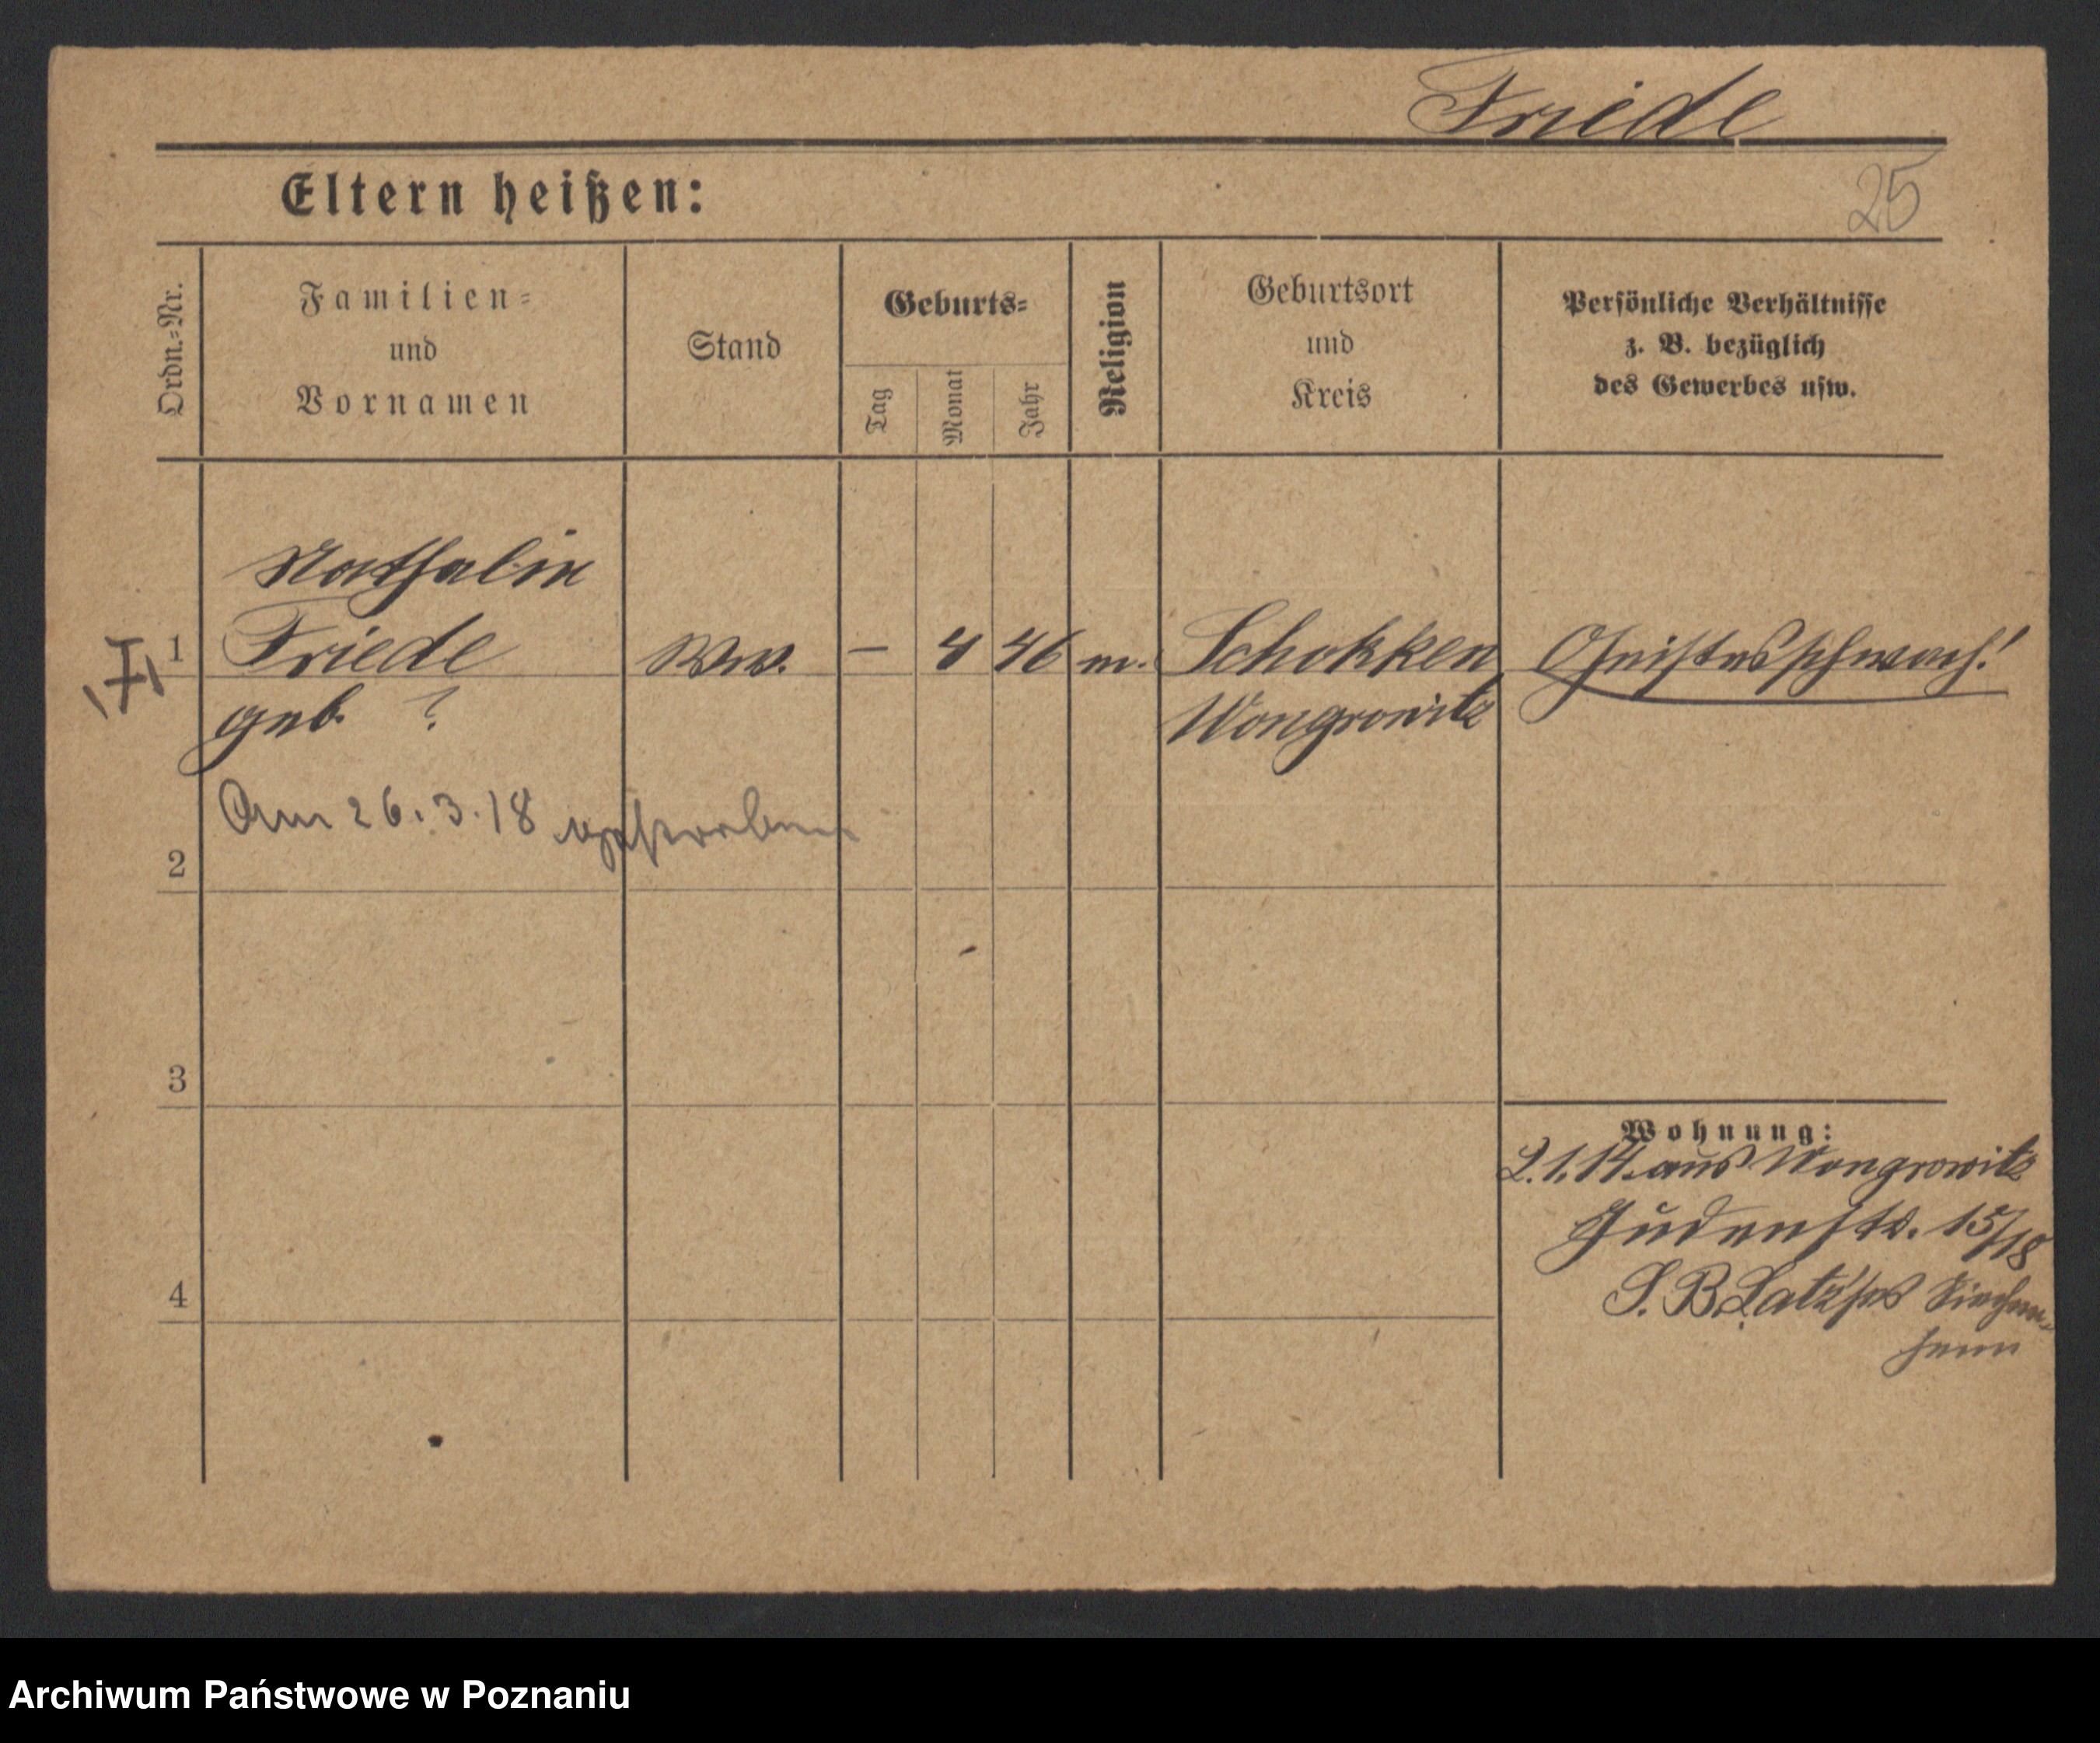 Friede
Eltern heißen:
25
Ordn.-Nr.
Familien-
und
Vornamen
Stand
Geburts-
Tag
Monat
Jahr
Religion
Geburtsort
und
Kreis
Persönliche Verhältnisse
z. B. bezüglich
des Gewerbes usw.
Nathalie
1 Friede Ww. – 4 46 m. Schokken Geistesschwach!
geb. ? Wongrowitz
Am 26.3.18 verstorben
2
3
Wohnung:
2.1.14. aus Wongrowitz
Judenstr. 15/18
4
S. B. Latz'sches Siechen-
heim
Archiwum Państwowe w Poznaniu